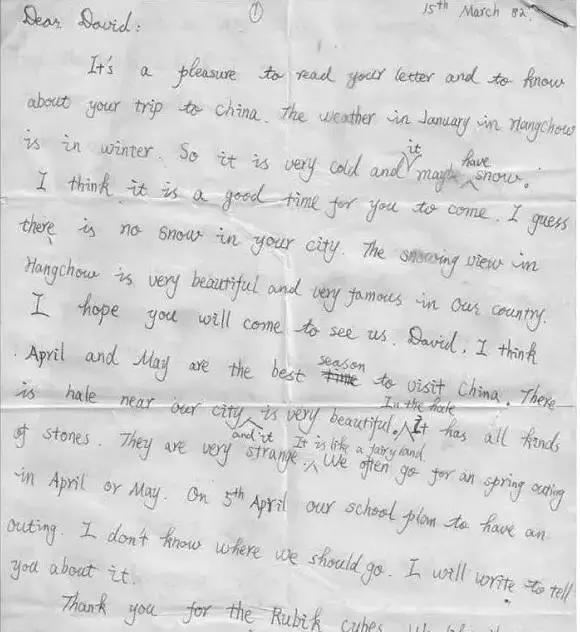 ① 15th March 82.
Dear David:
It's a pleasure to read your letter and to know
about your trip to China. The weather in January in Hangchow
is in winter. So it is very cold and it maybe have snow.
I think it is a good time for you to come. I guess
there is no snow in your city. The snowing view in
Hangchow is very beautiful and very famous in our country.
I hope you will come to see us. David, I think
April and May are the best season to visit China. There
is hale near our city and it is very beautiful. In the hale It has all kinds
of stones. They are very strange. It is like a fairy land We often go for an spring outing
in April or May. On 5th April our school plan to have an
outing. I don't know where we should go. I will write to tell
you about it.
Thank you for the Rubik cubes.